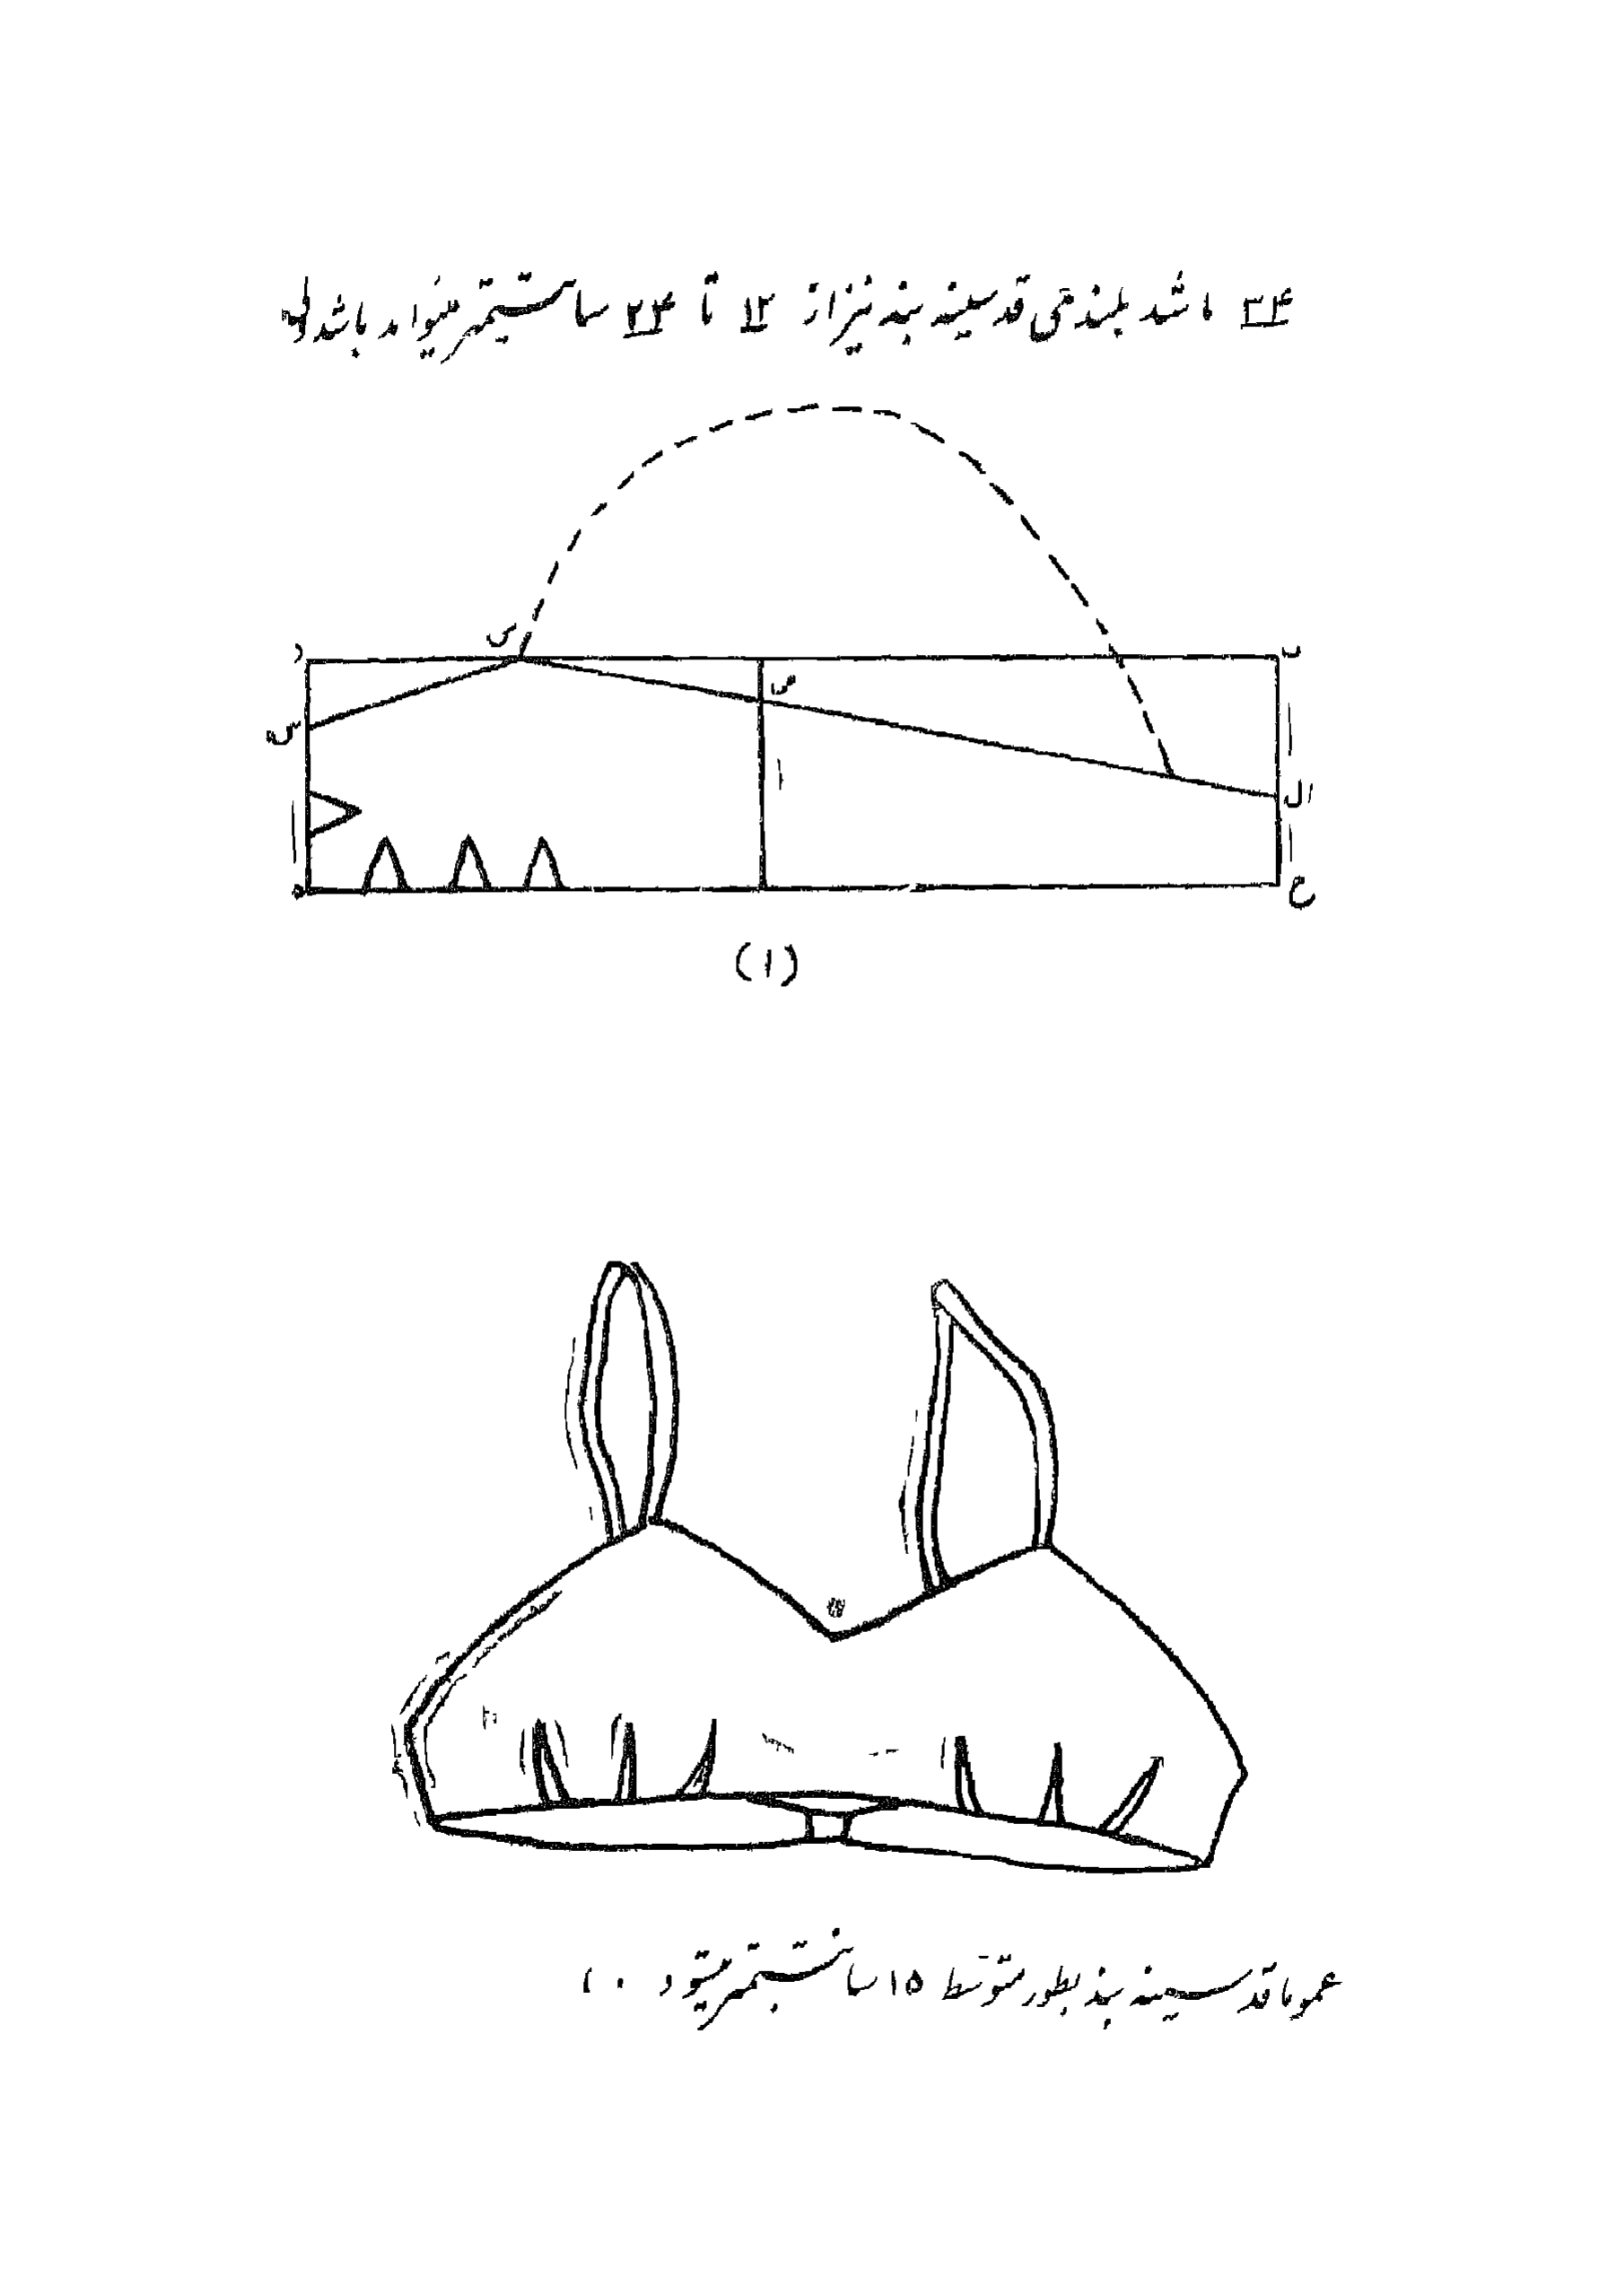 ۳۴ باشد بلندی قد سینه بند نیز از ۱۲ تا ۲۴ سانتیمتر میتواند باشد ولی
د
ی
ب
ص
س
ا
ال
ه
ح
(۱)
عموما قد سینه بند بطور متوسط ۱۵ سانتیمتر میشود.